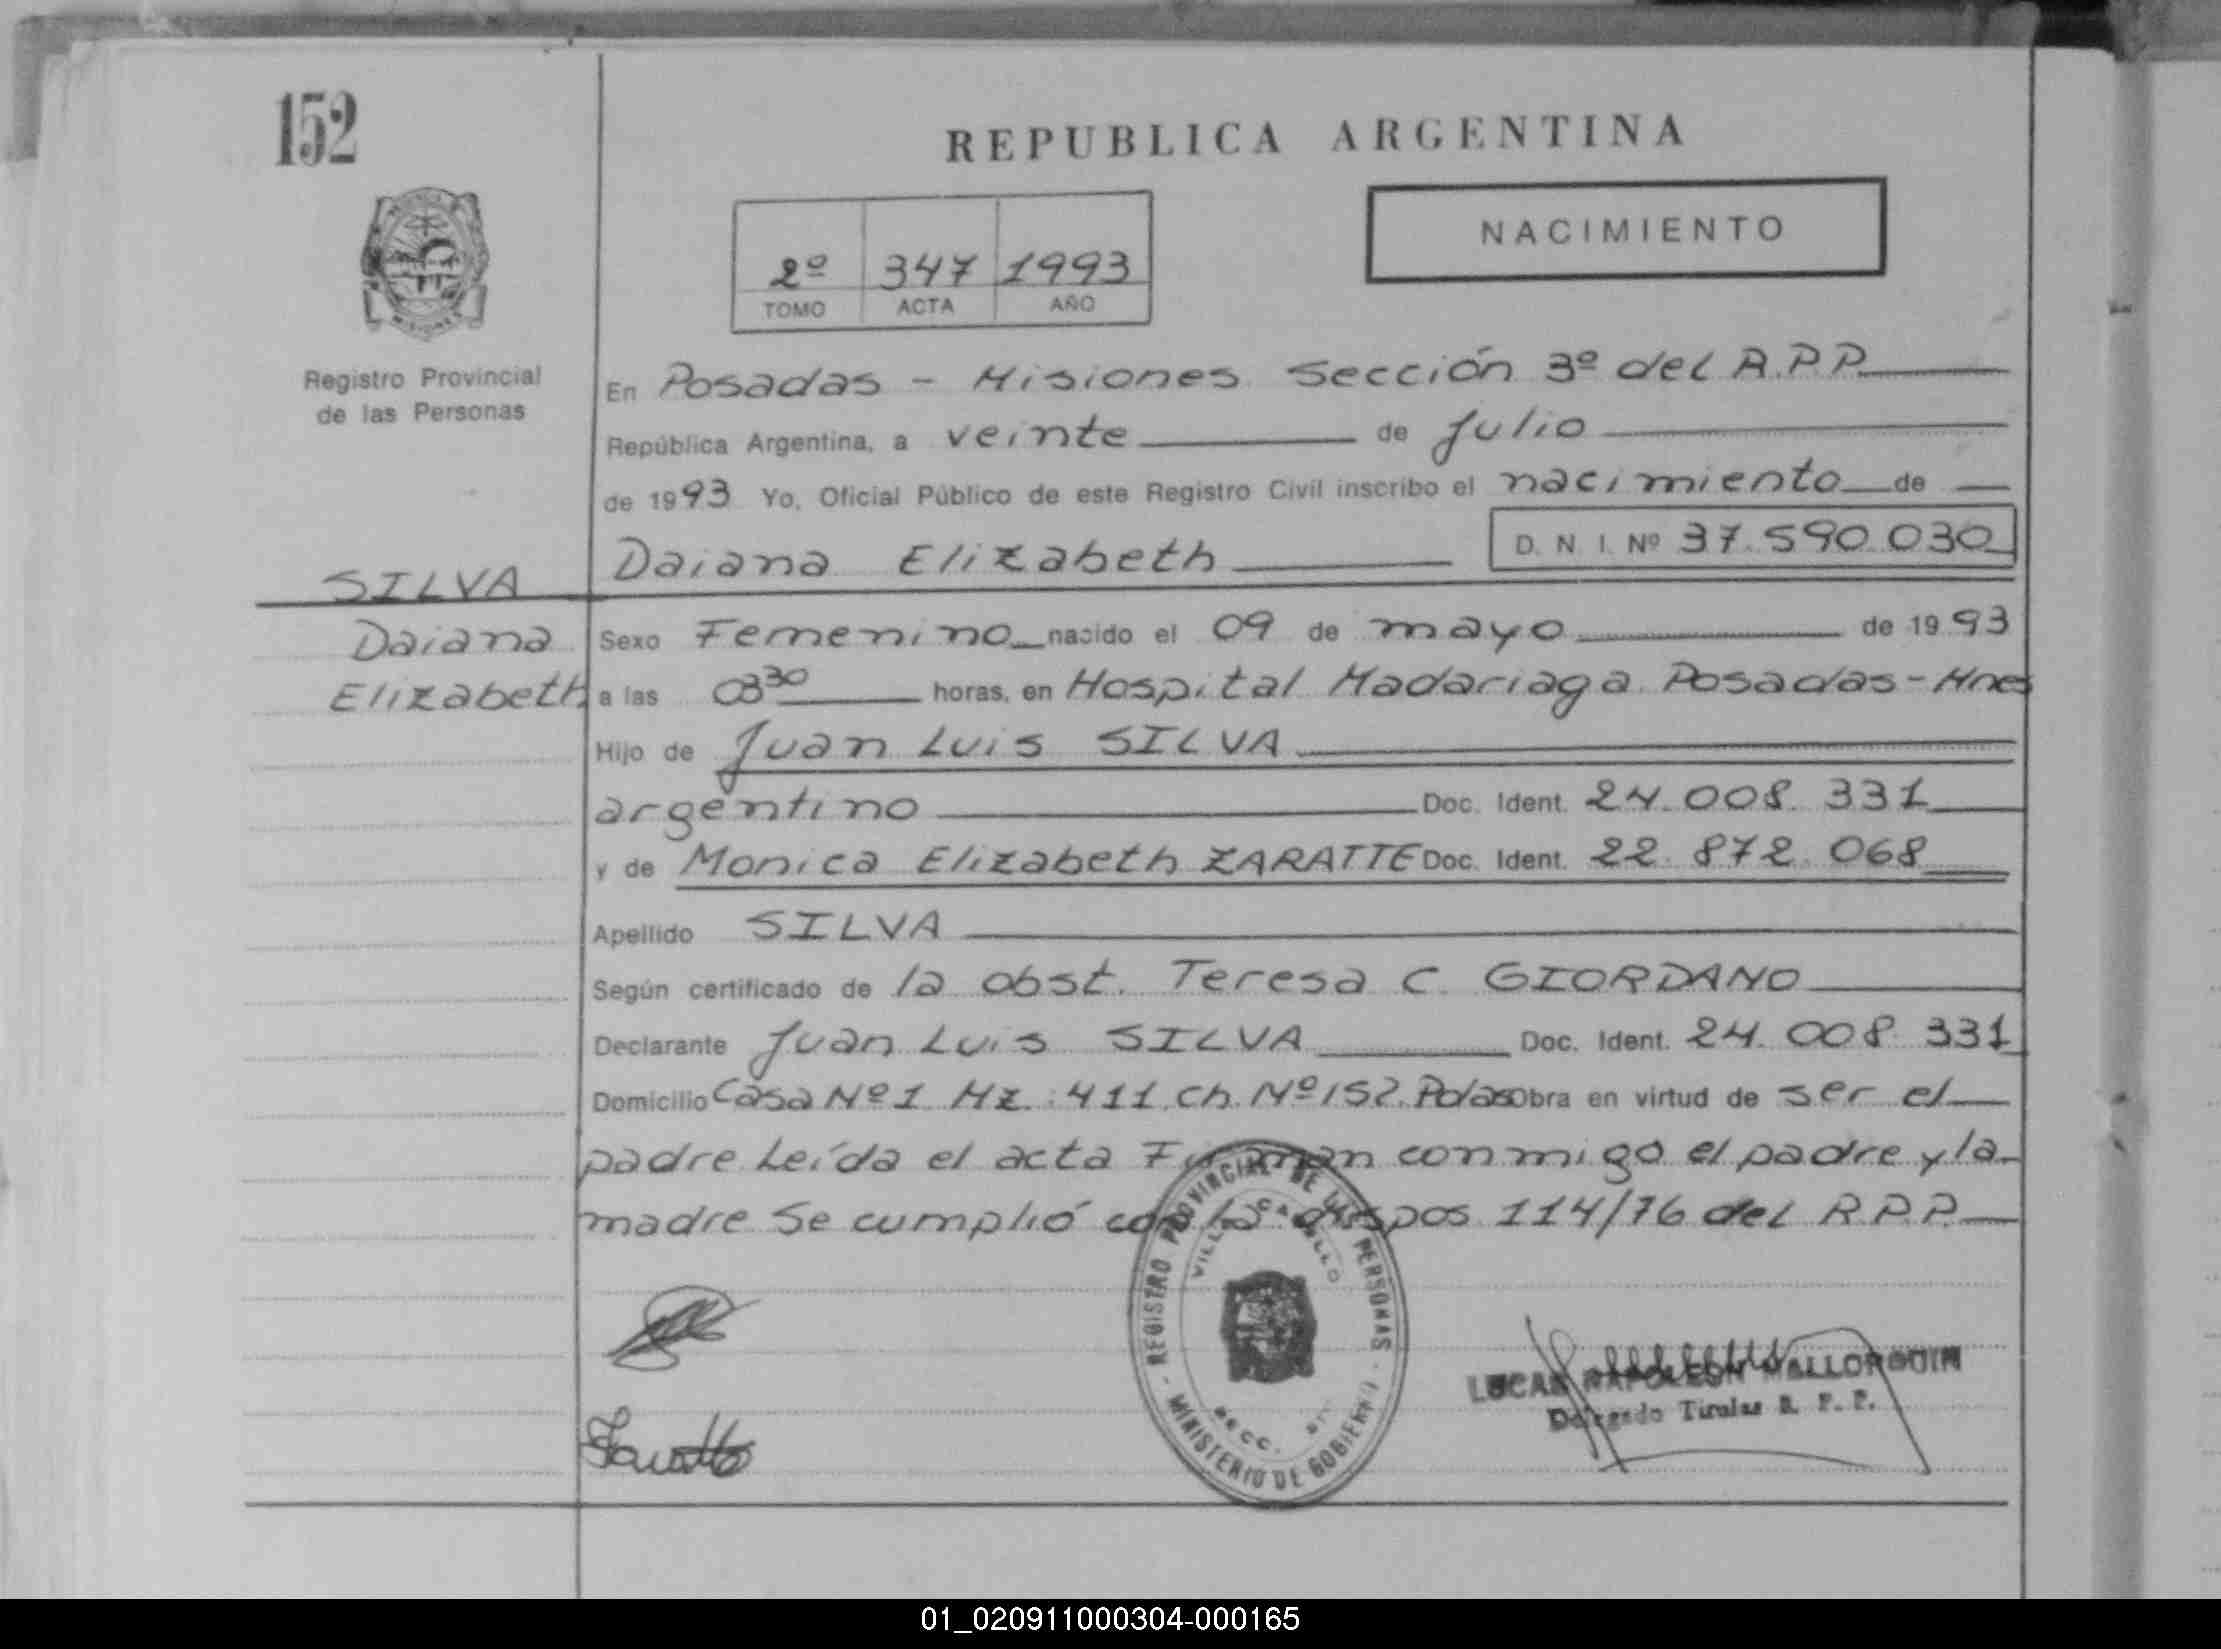 152
REPUBLICA ARGENTINA
NACIMIENTO
2º 347 1993
TOMO ACTA AÑO
MISIONES
Registro Provincial
de las Personas
En Posadas - Misiones Sección 3º del R.P.P.
República Argentina, a veinte de Julio
de 1993 Yo, Oficial Público de este Registro Civil inscribo el nacimiento de
Daiana Elizabeth D. N. I. Nº 37.590.030
SILVA
Daiana
Elizabeth
Sexo Femenino nacido el 09 de mayo de 1993
a las 03³⁰ horas, en Hospital Madariaga Posadas-Mnes
Hijo de Juan Luis SILVA
argentino Doc. Ident. 24.008.331
y de Monica Elizabeth ZARATTE Doc. Ident. 22.872.068
Apellido SILVA
Según certificado de la obst. Teresa C. GIORDANO
Declarante Juan Luis SILVA Doc. Ident. 24.008.331
Domicilio Casa Nº1 Mz. 411 Ch. Nº152. Obra en virtud de ser el
padre Leída el acta Firman conmigo el padre y la
madre Se cumplió con la dispos 114/76 del R.P.P.
REGISTRO PROVINCIAL DE LAS PERSONAS
MINISTERIO DE GOBIERNO
SECC.
LUCAS NAPOLEON MALLORQUIN
Delegado Titular R. P. P.
01_020911000304-000165